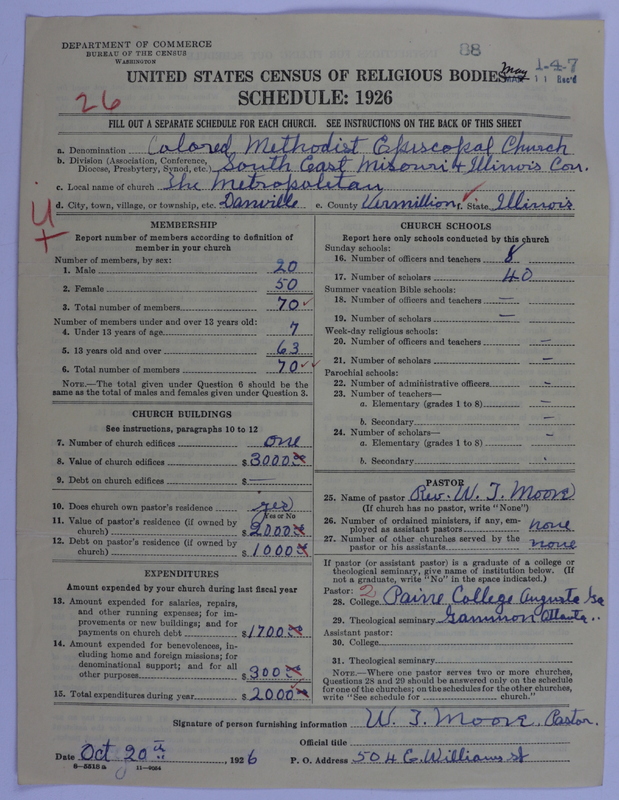 DEPARTMENT OF COMMERCE
BUREAU OF THE CENSUS
WASHINGTON
88
1-4-7
May
MAR 11 Rec'd
UNITED STATES CENSUS OF RELIGIOUS BODIES
SCHEDULE: 1926
26
FILL OUT A SEPARATE SCHEDULE FOR EACH CHURCH. SEE INSTRUCTIONS ON THE BACK OF THIS SHEET
a. Denomination Colored Methodist Episcopal Church
b. Division (Association, Conference, Diocese, Presbytery, Synod, etc.) South East Misouri & Illinois Con.
c. Local name of church The Metropolitan
d. City, town, village, or township, etc. Danville e. County Vermillion f. State Illinois
4
+
MEMBERSHIP
Report number of members according to definition of
member in your church
Number of members, by sex:
1. Male 20
2. Female 50
3. Total number of members 70
Number of members under and over 13 years old:
4. Under 13 years of age 7
5. 13 years old and over 63
6. Total number of members 70
NOTE.—The total given under Question 6 should be
same as the total of males and females given under Question 3.
CHURCH BUILDINGS
See instructions, paragraphs 10 to 12
7. Number of church edifices one
8. Value of church edifices $3000.00
9. Debt on church edifices $ —
10. Does church own pastor's residence yes
Yes or No
11. Value of pastor's residence (if owned by
church) $2000.00
12. Debt on pastor's residence (if owned by
church) $1000.00
EXPENDITURES
Amount expended by your church during last fiscal year
13. Amount expended for salaries, repairs,
and other running expenses; for im-
provements or new buildings; and for
payments on church debt $1700.00
14. Amount expended for benevolences, in-
cluding home and foreign missions; for
denominational support; and for all
other purposes $300.00
15. Total expenditures during year $2000.00
CHURCH SCHOOLS
Report here only schools conducted by this church
Sunday schools:
16. Number of officers and teachers 8
17. Number of scholars 40
Summer vacation Bible schools:
18. Number of officers and teachers —
19. Number of scholars —
Week-day religious schools:
20. Number of officers and teachers —
21. Number of scholars —
Parochial schools:
22. Number of administrative officers -
23. Number of teachers—
a. Elementary (grades 1 to 8) —
b. Secondary —
24. Number of scholars—
a. Elementary (grades 1 to 8) -
b. Secondary -
PASTOR
25. Name of pastor Rev. W. J. Moore
(If church has no pastor, write "None")
26. Number of ordained ministers, if any, em-
ployed as assistant pastors none
27. Number of other churches served by the
pastor or his assistants none
If pastor (or assistant pastor) is a graduate of a college or
theological seminary, give name of institution below. (If
not a graduate, write "No" in the space indicated.)
Pastor: 2
28. College Paine College Augusta Ga
29. Theological seminary Gammon Atlanta ..
Assistant pastor:
30. College
31. Theological seminary
NOTE.—Where one pastor serves two or more churches,
Questions 28 and 29 should be answered only on the schedule
for one of the churches; on the schedules for the other churches,
write "See schedule for church."
Signature of person furnishing information W. J. Moore, Pastor.
Official title
Date Oct 20th, 1926 P. O. Address 504 E. Williams St
8-5515 a 11-9064